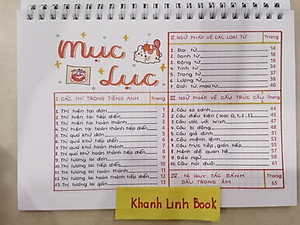 Mục
Lục
I. CÁC THÌ TRONG TIẾNG ANH Trang
1. Thì hiện tại đơn 1
2. Thì hiện tại tiếp diễn 2
3. Thì hiện tại hoàn thành
4. Thì hiện tại hoàn thành tiếp diễn
5. Thì quá khứ đơn
6. Thì quá khứ tiếp diễn
7. Thì quá khứ hoàn thành
8. Thì quá khứ hoàn thành tiếp diễn
9. Thì tương lai đơn
10. Thì tương lai tiếp diễn
11. Thì tương lai hoàn thành
12. Thì tương lai hoàn thành tiếp diễn
13. Thì tương lai gần 13
II. NGỮ PHÁP VỀ CÁC LOẠI TỪ Trang
1. Đại từ 14
2. Danh từ 18
3. Động từ
4. Tính từ
5. Trạng từ
6. Lượng từ 38
7. Giới từ, mạo từ
III. NGỮ PHÁP VỀ CẤU TRÚC CÂU Trang
1. Câu so sánh
2. Câu điều kiện (loại 0, 1, 2, 3)
3. Câu ước với wish
4. Câu bị động
5. Câu giả định
6. Câu trực tiếp, gián tiếp
7. Mệnh đề quan hệ
8. Đảo ngữ
9. Câu hỏi đuôi 61
QUY TẮC ĐÁNH Trang
DẤU TRỌNG ÂM 65
Khanh Linh Book